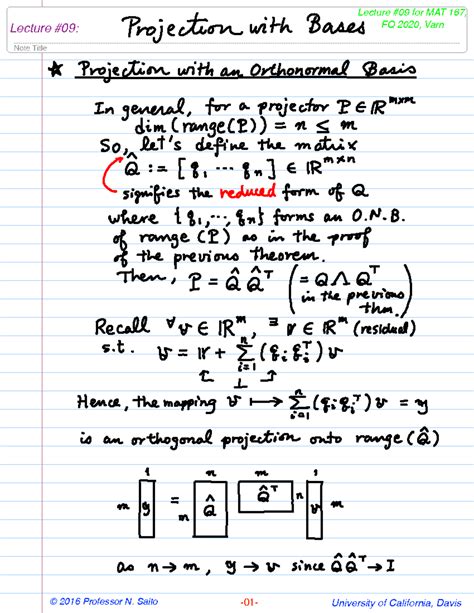 Lecture #09 for MAT 167,
FQ 2020, Varn
Lecture #09:
Projection with Bases
Note Title
* Projection with an Orthonormal Basis
In general, for a projector P ∈ ℝ^{m×m}
dim(range(P)) = n ≤ m
So, let's define the matrix
Q̂ := [q₁ ⋯ qₙ] ∈ ℝ^{m×n}
signifies the reduced form of Q
where {q₁, ⋯, qₙ} forms an O.N.B.
of range(P) as in the proof
of the previous theorem.
Then, P = Q̂ Q̂ᵀ (= Q Λ Qᵀ
in the previous
thm.)
Recall ∀v ∈ ℝᵐ, ∃ r ∈ ℝᵐ (residual)
s.t. v = r + Σ_{i=1}^{n} (qᵢ qᵢᵀ) v
⊥
Hence, the mapping v ⟼ Σ_{i=1}^{n} (qᵢ qᵢᵀ) v = y
is an orthogonal projection onto range(Q̂)
1 n m 1
m y = m Q̂ Q̂ᵀ n v m
as n → m, y → v since Q̂ Q̂ᵀ → I
© 2016 Professor N. Saito
-01-
University of California, Davis